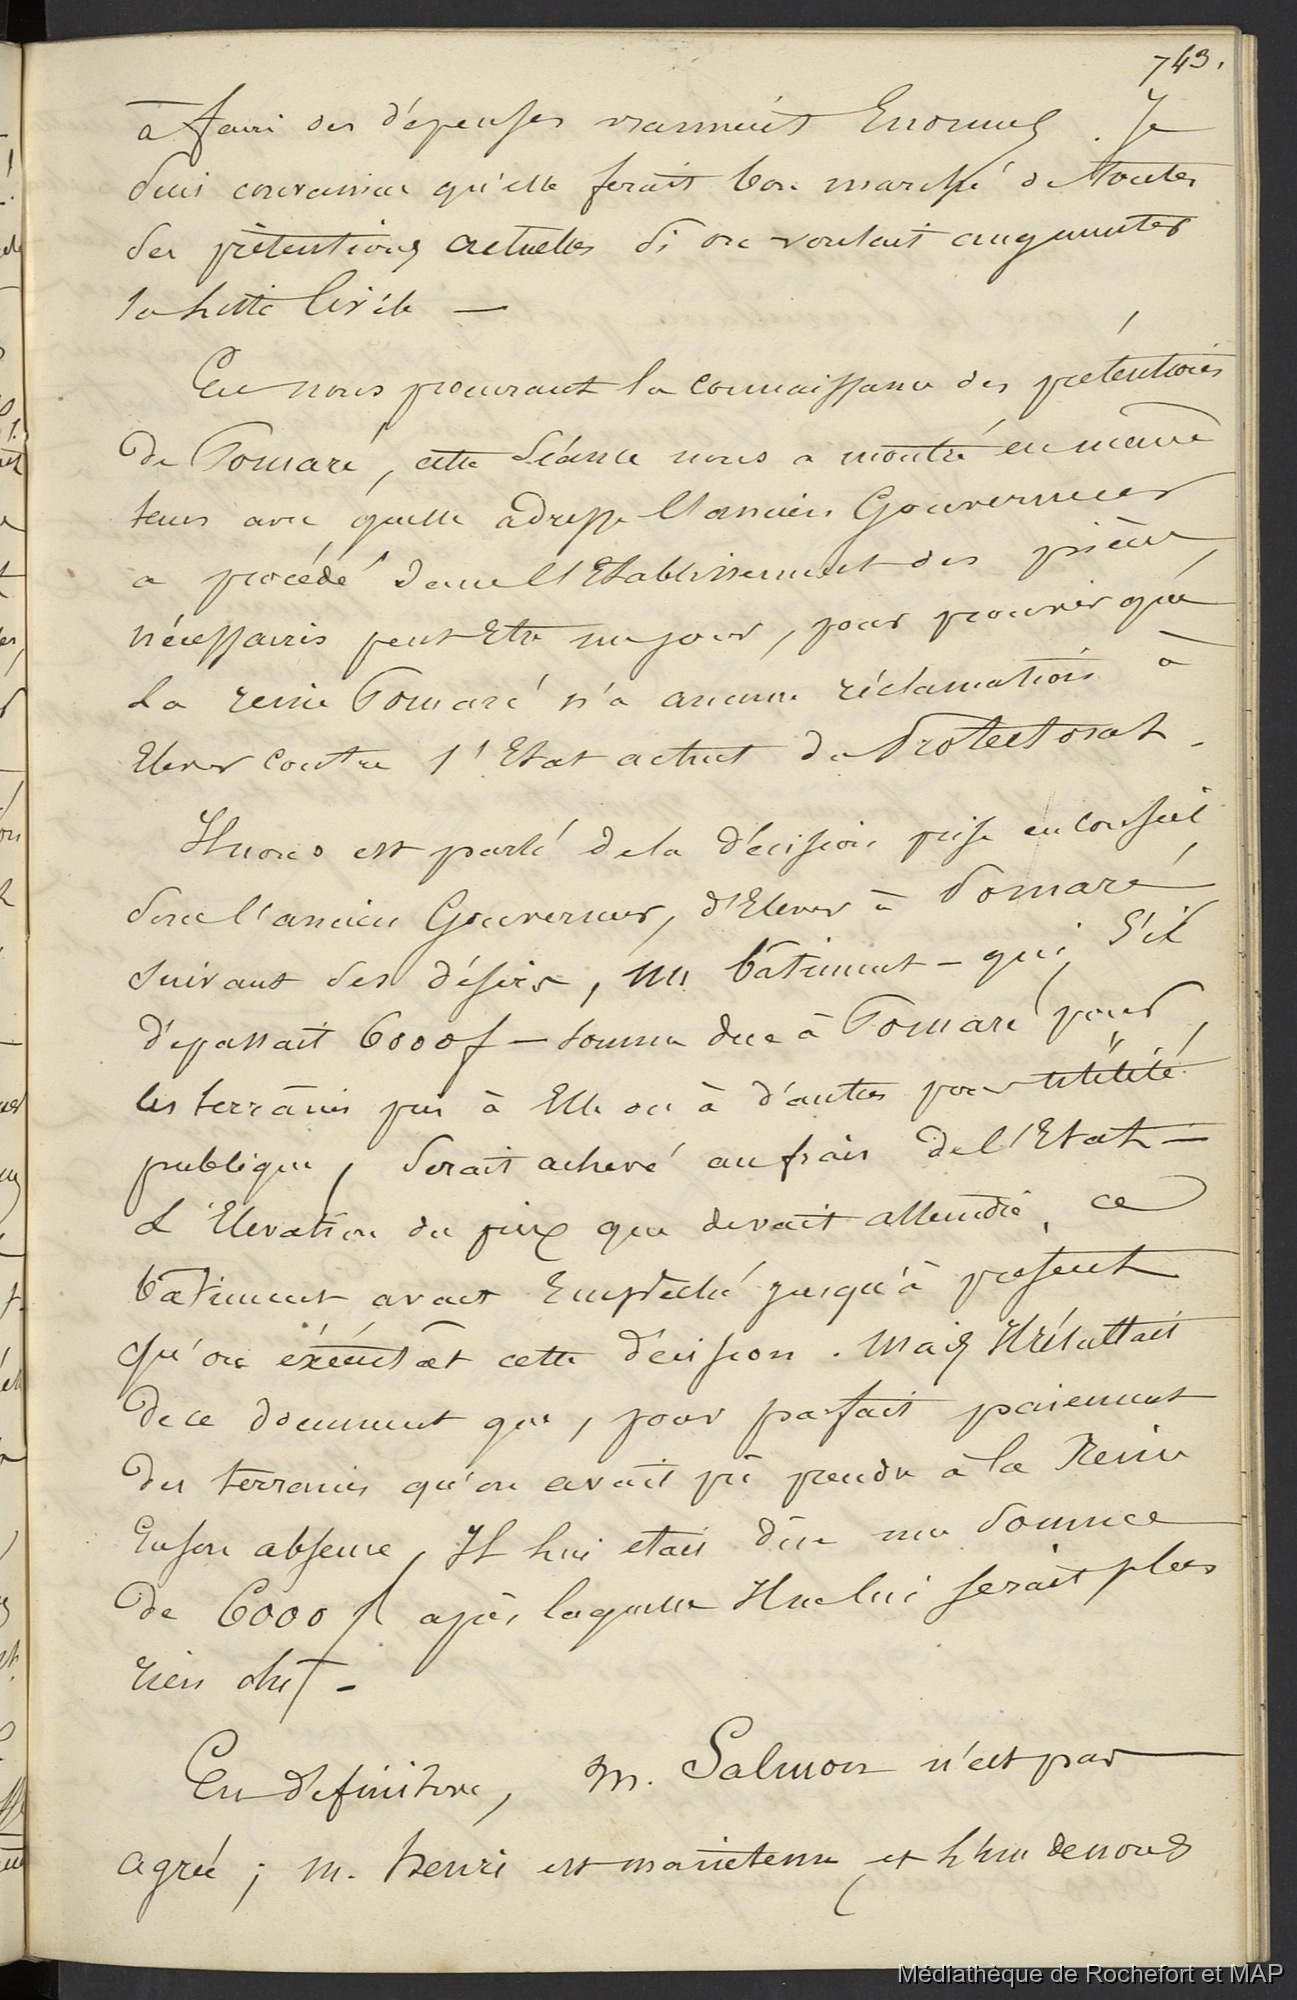 743.
à faire des dépenses vraiment Enormes. Je
suis convaincu qu'elle ferait bon marché de toutes
ses prétentions actuelles si on voulait augmenter
la liste Civile —
En nous procurant la connaissance des prétentions
de Pomaré, cette séance nous a montré en même
tems avec quelle adresse l'ancien Gouverneur
a procédé dans l'Etablissement des pièces
nécessaires peut Etre un jour, pour prouver que
La reine Pomaré n'a aucune réclamation à
Elever contre l'Etat actuel du Protectorat.
Il nous est parlé de la décision prise en conseil
sous l'ancien Gouverneur, d'Elever à Pomaré
suivant ses désirs, un bâtiment – qui, s'il
dépassait 6000f – somme due à Pomaré pour
les terrains pris à Elle ou à d'autres pour utilité
publique, serait achevé au frais de l'Etat —
L'Elevation du prix que devait atteindre, ce
bâtiment avait Empêché jusqu'à présent
qu'on éxécutat cette décision. Mais Il résultait
de ce document que, pour parfait paiement
des terrains qu'on avait pû prendre à la Reine
En son absence, Il lui etait dûe une somme
de 6000 f après laquelle Il ne lui serait plus
rien dû –
En définitive, M. Salmon n'est pas
agréé; M. henri est maintenu et l'un de nous
Médiathèque de Rochefort et MAP